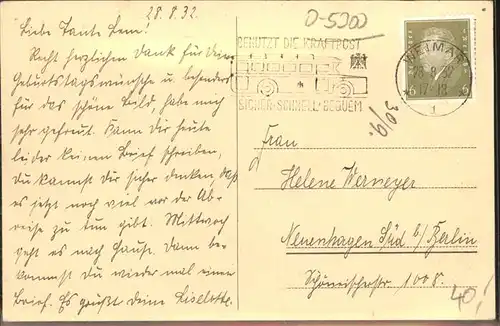 28.8.32.
Liebe Tante Leni!
Recht herzlichen Dank für Deine
Geburtstagswünsche u. besonders
für das schöne Bild, habe mich
sehr gefreut. Kann Dir heute
leider keinen Brief schreiben,
Du kannst Dir sicher denken, daß
es jetzt noch viel vor der Ab-
reise zu tun gibt. Mittwoch
geht es nach Hause. Dann be-
kommst Du wieder mal einen
Brief. Es grüßt Deine Liselotte.
D-5300
BENUTZT DIE KRAFTPOST
SICHER·SCHNELL·BEQUEM
WEIMAR
28.8.32
17-18
1
6 6
30/9.
Frau
Helene Werneyer
Neuenhagen Süd b/Berlin
100
40,-